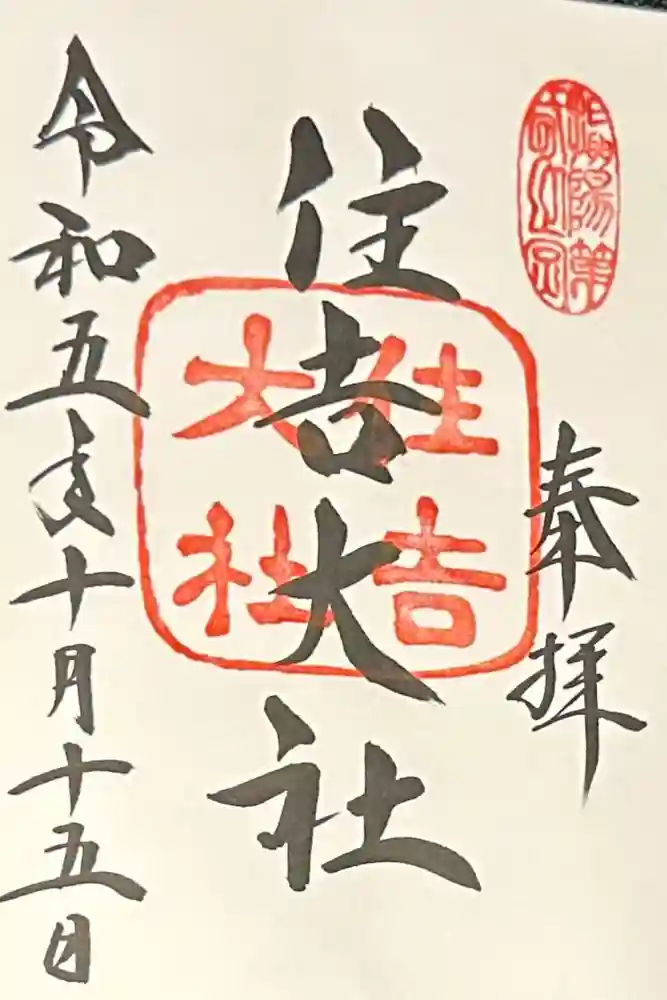 陽第
奉拝
住吉大社
住吉
大社
令和五年十月十五日